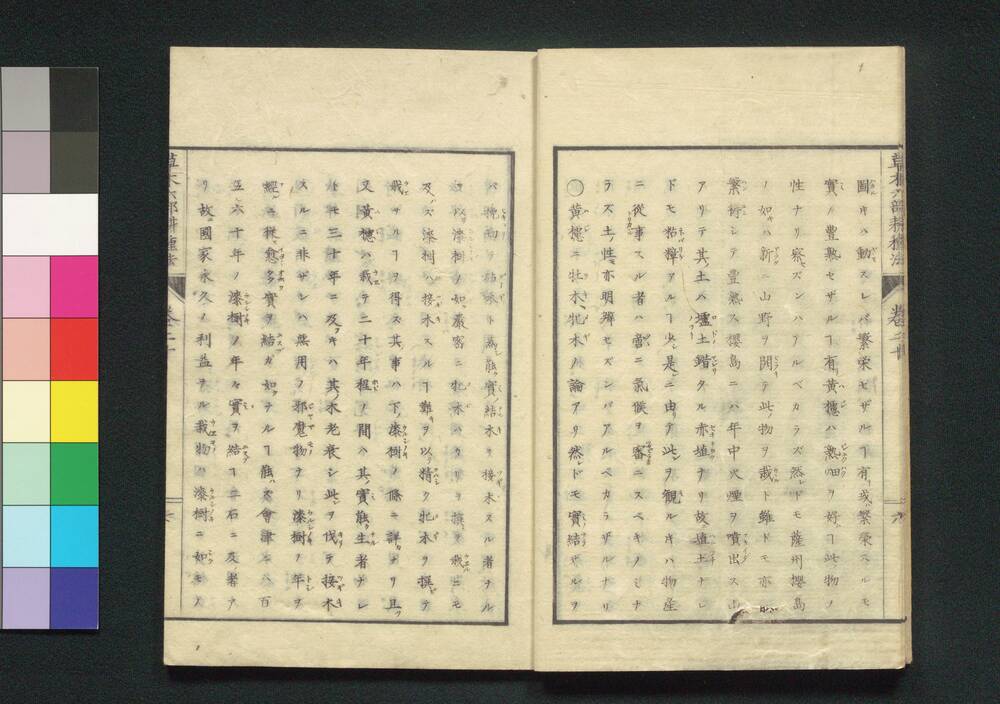 圃キハ動スレバ繁栄セザルヿ有或繁榮スルモ
實ノ豊熟セザルヿ有黄櫨ハ熟畑ヲ好ヿ此物ノ
性ナリ察セズンバアルベカラズ然レドモ薩州櫻島
ノ如キハ新ニ山野ヲ開テ此物ヲ栽ト雖ドモ亦
繁衍シテ豊熟ス櫻島ニハ年中火煙ヲ噴出ス山
アリテ其土ハ壚土鍇クタル赤埴ナリ故埴土ナレ
ドモ粘纏アルヿ少シ是ニ由テ此ヲ観ルキハ物産
ニ從事スル者ハ啻ニ氣候ヲ審ニスベキノミナ
ラズ土性亦明辨セズンバアルベカラザルナリ
○黄櫨ニ牡木牝木ノ論アリ然レドモ實結ザルヲ
バ
漆樹ノ如ク嚴密ニ牝木バカリヲ擇テ栽ニモ
及バズ漆樹ハ接木スルヿ難キヲ以精ク牝木ヲ撰テ
栽ザルヿヲ得ズ其事ハ下ノ漆樹ノ條ニ詳ナリ且ツ
又黄櫨ハ栽テ二十年程ノ間ハ其實能ク生者ナレ
ドモ三十年ニ及ブキハ其木老衰シ此ヲ伐テ接木
スルニ非ザレハ無用ノ邪魔物ナリ漆樹ノ年ヲ
經ニ從愈多ク實ヲ結ガ如ナルヿ能ハズ會津ニハ百
五六十年ノ漆樹ノ年々實ヲ結ヿ二石ニ及者ア
リ故國家永久ノ利益ナル栽物ハ漆樹ニ如モノ
草木六部耕種法
卷二十
六